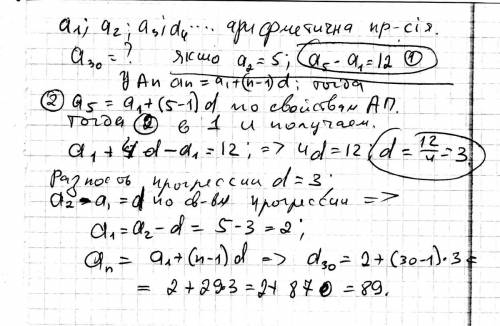 a₁; a₂; a₃; a₄ .... арифметична пр-сія.
a₃₀ = ? якшо a₂ = 5; a₅ - a₁ = 12 ①
У Ап an = a₁ + (n-1)d; тогда
② a₅ = a₁ + (5-1)d по свойствам АП.
тогда ② в 1 и получаем.
a₁ + 4d - a₁ = 12; => 4d = 12; d = 12/4 = 3.
Разность прогрессии d = 3.
a₂ - a₁ = d по св-вы прогрессии =>
a₁ = a₂ - d = 5 - 3 = 2;
an = a₁ + (n-1)d => a₃₀ = 2 + (30-1)·3 =
= 2 + 29·3 = 2 + 87 = 89.